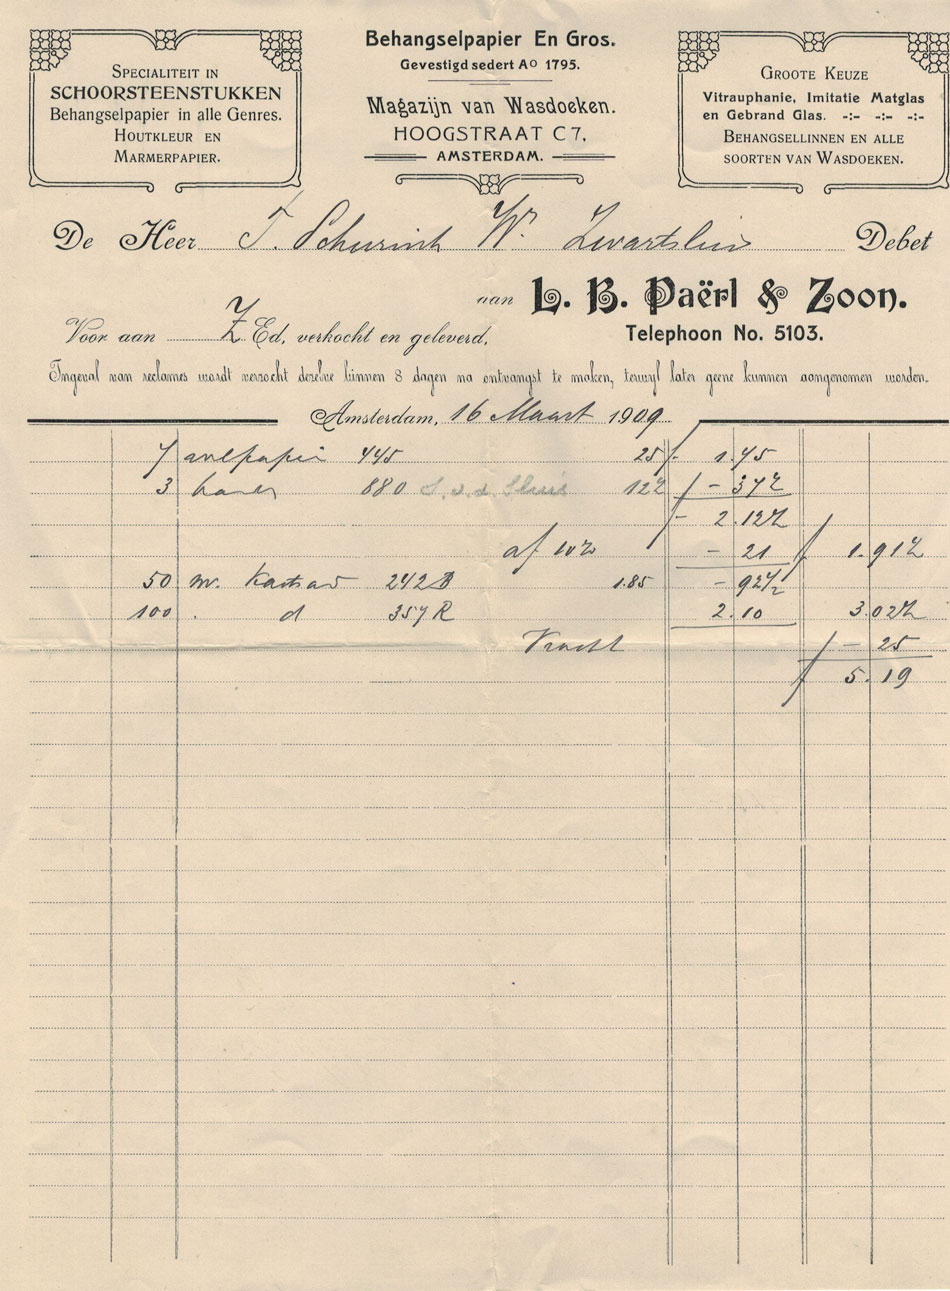 SPECIALITEIT IN
SCHOORSTEENSTUKKEN
Behangselpapier in alle Genres.
HOUTKLEUR EN
MARMERPAPIER.
Behangselpapier En Gros.
Gevestigd sedert Ao 1795.
Magazijn van Wasdoeken.
HOOGSTRAAT C 7,
AMSTERDAM.
GROOTE KEUZE
Vitrauphanie, Imitatie Matglas
en Gebrand Glas. -:- -:- -:-
BEHANGSELLINNEN EN ALLE
SOORTEN VAN WASDOEKEN.
De Heer T. Schurink Wz. Zwartsluis Debet
aan L. B. Paërl & Zoon.
Voor aan Z Ed, verkocht en geleverd,
Telephoon No. 5103.
Ingeval van reclames wordt verzocht dezelve binnen 8 dagen na ontvangst te maken, terwyl later geene kunnen aangenomen worden.
Amsterdam, 16 Maart 1909
7 445 25 f 1.75
3 880 S. v. d. Sluis 12½ - 37½
f 2.12½
af 10% - 21 f 1.91½
50 242B 1.85 - 92½
100 d 357R 2.10 3.02½
Vracht f - 25
f 5.19